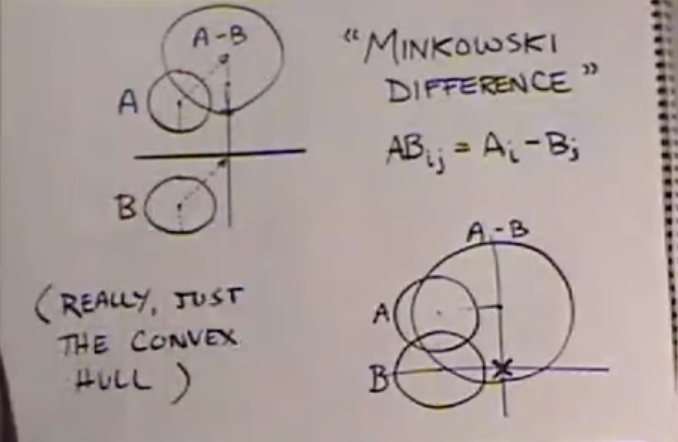 A-B
A
B
"MINKOWSKI
DIFFERENCE"
ABij = Ai - Bj
(REALLY, JUST
THE CONVEX
HULL)
A-B
A
B